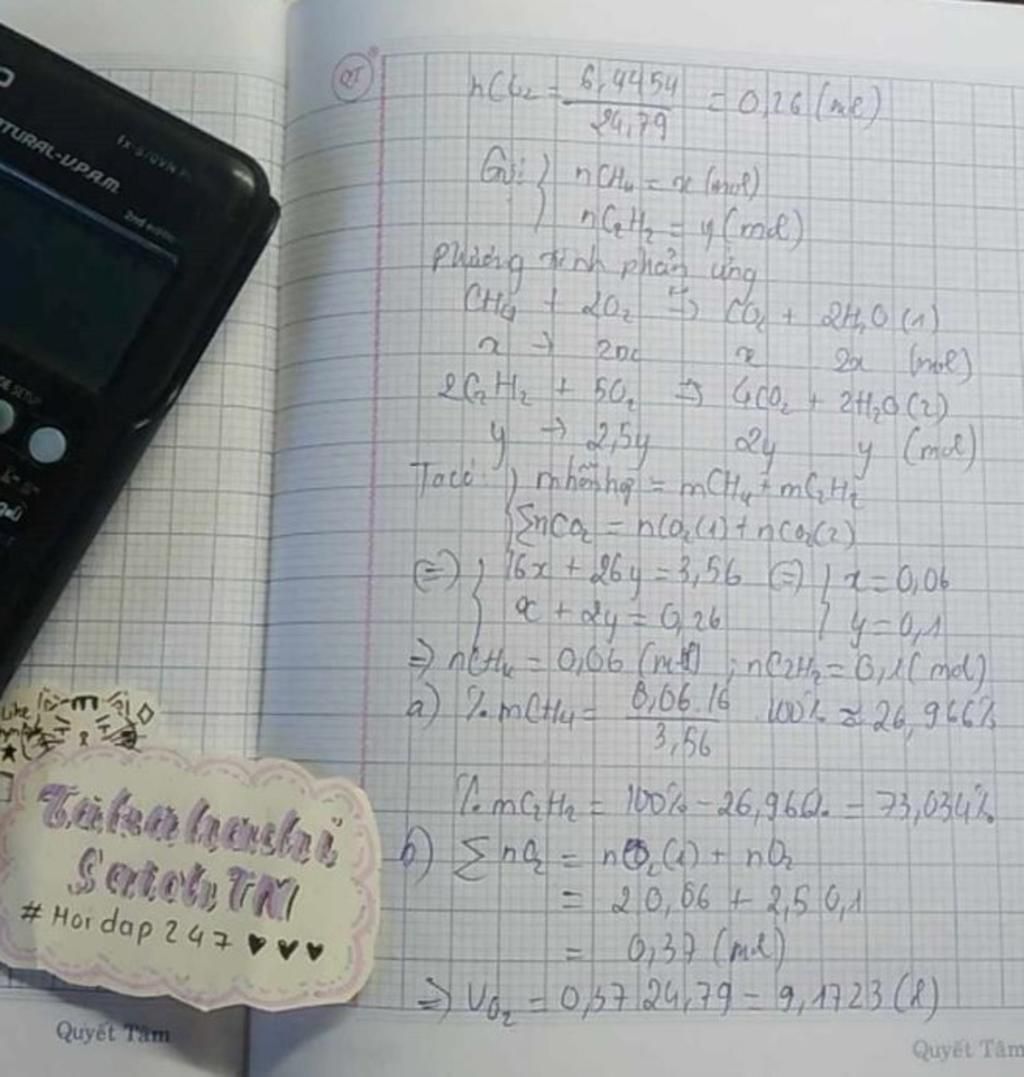 NATURAL-V.P.A.M.
nCO₂ = 6,4454 / 24,79 = 0,26 (mol)
Gọi } nCH₄ = x (mol)
nC₂H₂ = y (mol)
phương trình phản ứng
CH₄ + 2O₂ → CO₂ + 2H₂O (1)
x → 2x x 2x (mol)
2C₂H₂ + 5O₂ → 4CO₂ + 2H₂O (2)
y → 2,5y 2y y (mol)
Ta có: } m hỗn hợp = mCH₄ + mC₂H₂
ΣnCO₂ = nCO₂(1) + nCO₂(2)
(=) } 16x + 26y = 3,56 (=) } x = 0,06
x + 2y = 0,26 y = 0,1
=> nCH₄ = 0,06 (mol) ; nC₂H₂ = 0,1 (mol)
a) %mCH₄ = 0,06.16 / 3,56 .100% ≈ 26,966%
%mC₂H₂ = 100% - 26,966% = 73,034%
b) ΣnO₂ = nO₂(1) + nO₂
= 2 0,06 + 2,5 0,1
= 0,37 (mol)
=> VO₂ = 0,37 24,79 = 9,1723 (l)
Takahashi
Satoh, TM
#Hoidap247 ♥♥♥
Quyết Tâm
Quyết Tâm